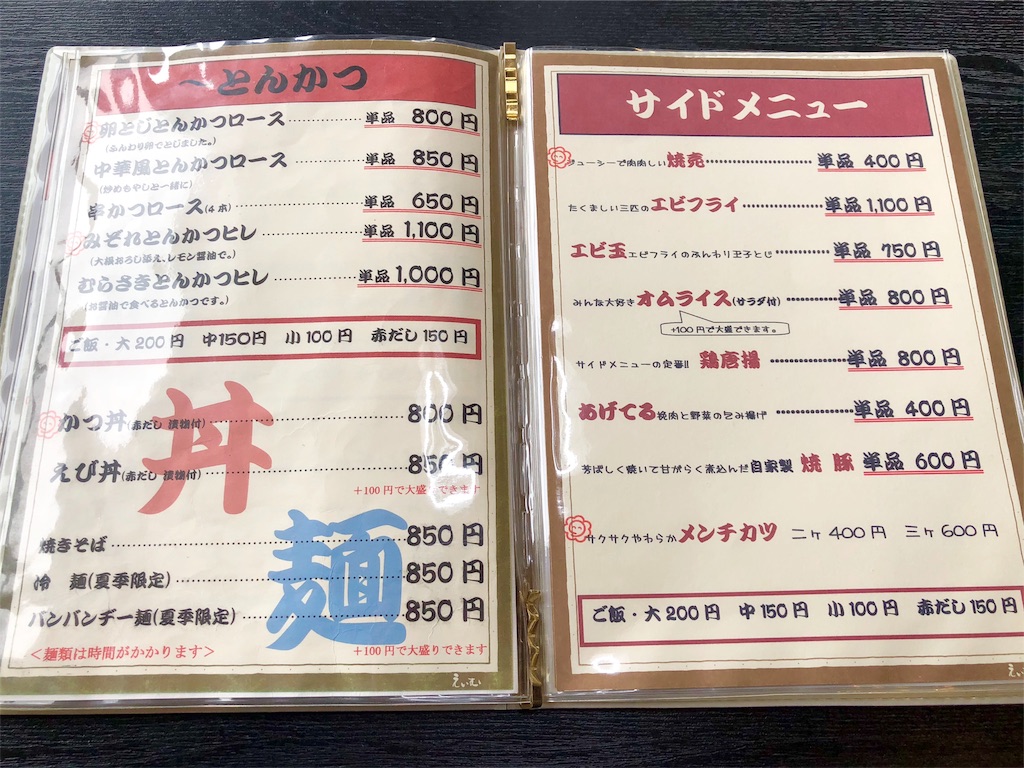 〜とんかつ
卵とじとんかつロース 単品 800円
(ふんわり卵でとじました。)
中華風とんかつロース 単品 850円
(炒めもやしと一緒に)
串かつロース(4本) 単品 650円
みぞれとんかつヒレ 単品 1,100円
(大根おろし添え、レモン醤油で。)
むらさきとんかつヒレ 単品 1,000円
(お醤油で食べるとんかつです。)
ご飯・大200円 中150円 小100円 赤だし150円
丼
かつ丼(赤だし 漬物付) 800円
えび丼(赤だし 漬物付) 850円
+100円で大盛りできます
麺
焼きそば 850円
冷 麺(夏季限定) 850円
バンバンヂー麺(夏季限定) 850円
<麺類は時間がかかります>
+100円で大盛りできます
サイドメニュー
ジューシーで肉肉しい焼売 単品 400円
たくましい三匹のエビフライ 単品 1,100円
エビ玉エビフライのふんわり玉子とじ 単品 750円
みんな大好きオムライス(サラダ付) 単品 800円
+100円で大盛できます。
サイドメニューの定番!! 鶏唐揚 単品 800円
あげてる挽肉と野菜の包み揚げ 単品 400円
芳ばしく焼いて甘がらく煮込んだ自家製 焼豚 単品 600円
サクサクやわらかメンチカツ 二ヶ400円 三ヶ600円
ご飯・大200円 中150円 小100円 赤だし150円